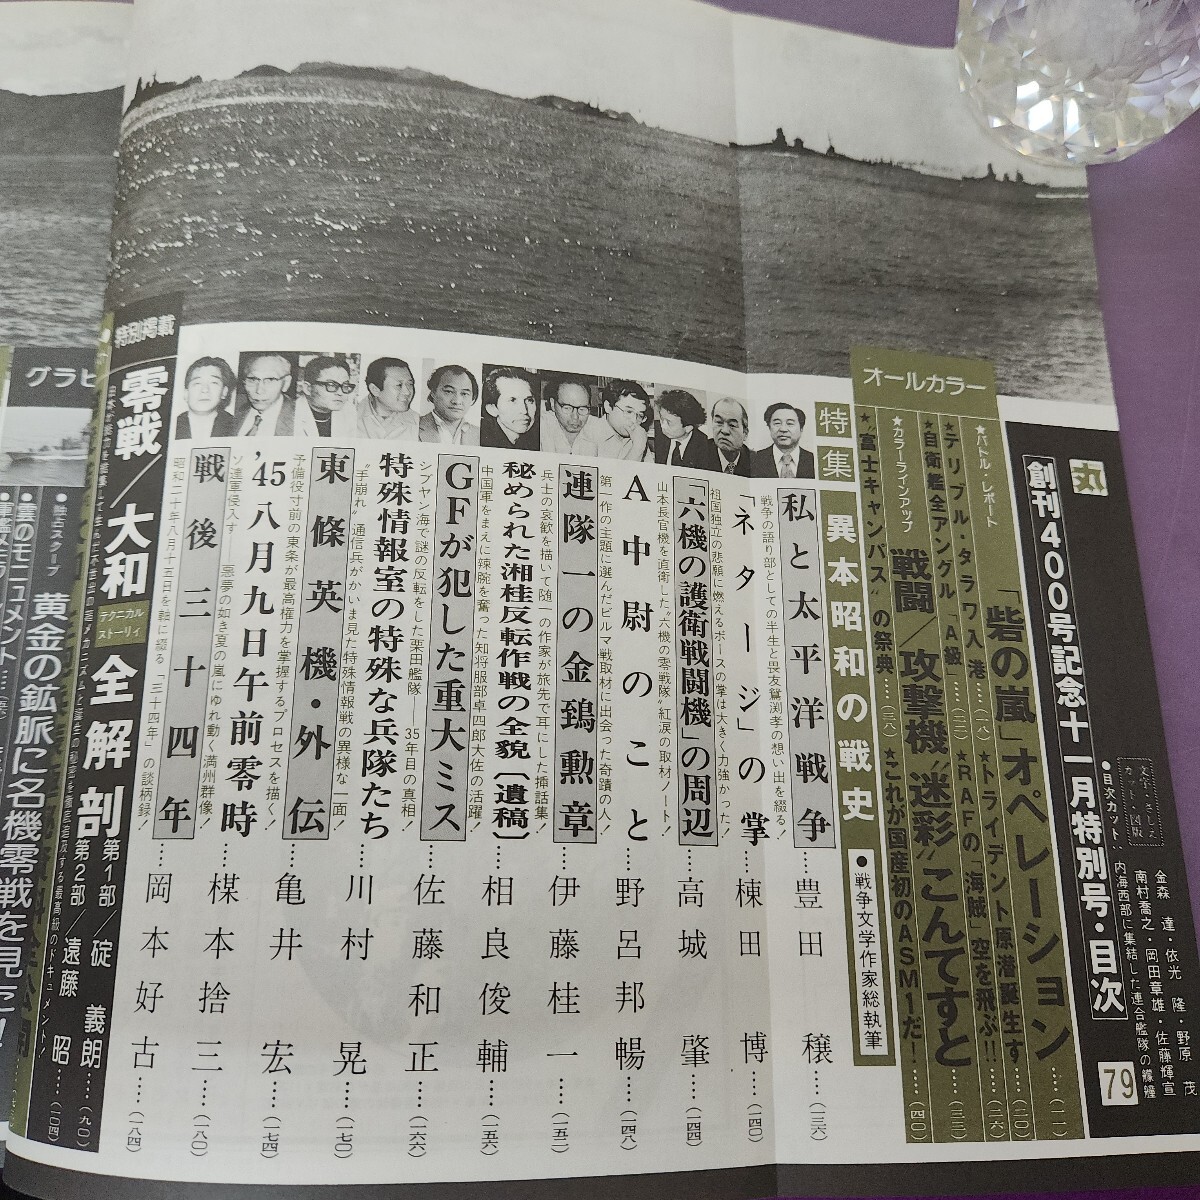 丸
創刊400号記念十一月特別号・目次
79
文字・さしえ
カット・図版
金森達・依光隆・野原茂
南村喬之・岡田章雄・佐藤輝宣
●目次カット‥内海西部に集結した連合艦隊の艨艟
オールカラー
「砦の嵐」オペレーション……(一一)
★バトル・レポート
★テリブル・タラワ入港……(一八)
★トライデント原潜誕生す……(二〇)
★自衛艦全アングル「A級」……(二二)
★RAFの「海賊」空を飛ぶ!!……(二六)
★カラーラインアップ
戦闘/攻撃機〝迷彩〟こんてすと……(三三)
★〝富士キャンバス〟の祭典……(三八)
★これが国産初のASM1だ!……(四〇)
特集
異本昭和の戦史
●戦争文学作家総執筆
私と太平洋戦争……豊田穣……(一三六)
戦争の語り部としての半生と畏友鷲渕孝の想い出を綴る!
「ネタージ」の掌……棟田博……(一四〇)
祖国独立の悲願に燃えるボースの掌は大きく力強かった!
「六機の護衛戦闘機」の周辺……高城肇……(一四四)
山本長官機を直衛した〝六機の零戦隊〟紅涙の取材ノート!
A中尉のこと……野呂邦暢……(一四八)
第一作の主題に選んだビルマ戦取材に出会った奇蹟の人!
連隊一の金鵄勲章……伊藤桂一……(一五二)
兵士の哀歓を描いて随一の作家が旅先で耳にした挿話集!
秘められた湘桂反転作戦の全貌〔遺稿〕……相良俊輔……(一五六)
中国軍をまえに辣腕を奮った知将服部卓四郎大佐の活躍!
GFが犯した重大ミス……佐藤和正……(一六六)
シブヤン海で謎の反転をした栗田艦隊――35年目の真相!
特殊情報室の特殊な兵隊たち……川村晃……(一七〇)
〝手崩れ〟通信兵がかいま見た特殊情報戦の異様な一面
東條英機・外伝……亀井宏……(一七四)
予備役寸前の東条が最高権力を掌握するプロセスを描く!
'45八月九日午前零時……楳本捨三……(一八〇)
ソ連軍侵入す――悪夢の如き夏の嵐にゆれ動く満州群像!
戦後三十四年……岡本好古……(一八四)
昭和二十年八月十五日を軸に綴る「三十四年」の談柄録!
特別掲載
零戦/大和
テクニカル
ストーリィ
全解剖
第1部/碇義朗……(九〇)
第2部/遠藤昭……(一〇四)
グラビ
●独占スクープ
黄金の鉱脈に名機零戦を見た!